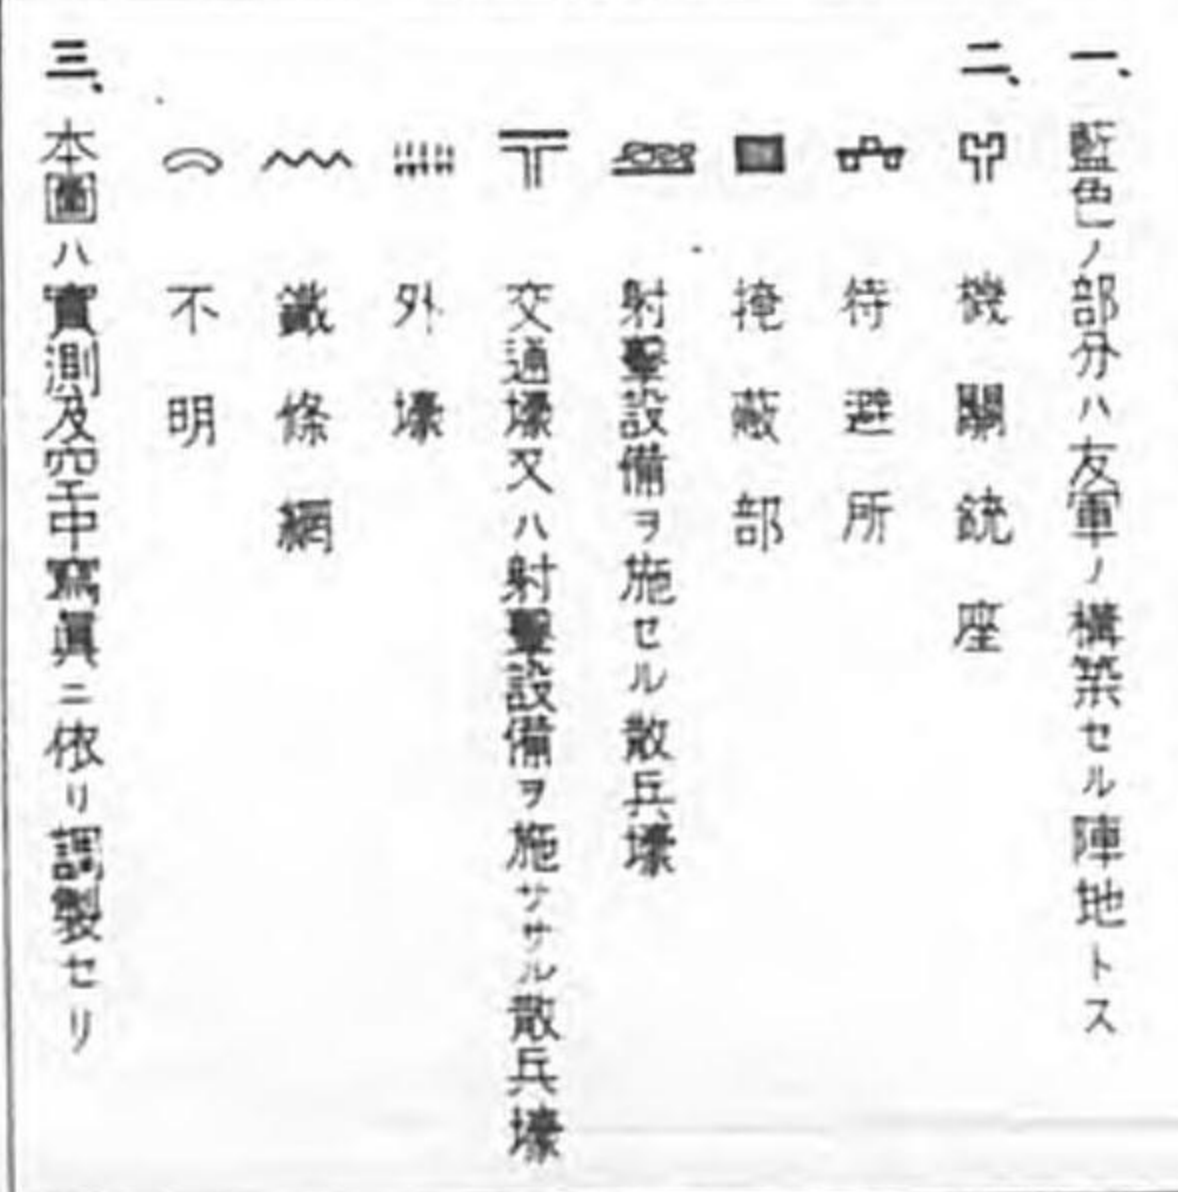 一、藍色ノ部分ハ友軍ノ構築セル陣地トス
二、機關銃座
待避所
掩蔽部
射擊設備ヲ施セル散兵壕
交通壕又ハ射擊設備ヲ施サザル散兵壕
外壕
鐵條網
不明
三、本圖ハ實測及空中寫眞ニ依リ調製セリ